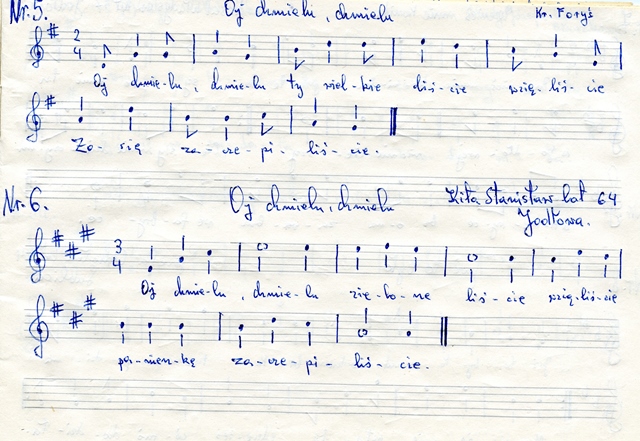 Nr. 5. Oj chmielu, chmielu Kr. Foryś
2 4
Oj chmie-lu, chmie-lu ty wiel-kie liś-cie wzię-liś-cie
Zo-się za-cze-pi-liś-cie.
Nr. 6. Oj chmielu, chmielu Kita Stanisław lat 64
Jodłowa.
3 4
Oj chmie-lu, chmie-lu zie-lo-ne liś-cie wzię-liś-cie
pa-nien-kę za-cze-pi-liś-cie.